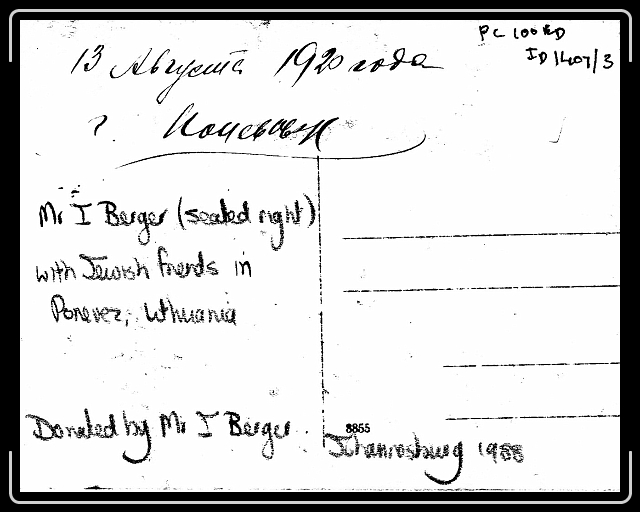 PC 100
ID 1407/3
13 Августа 1920 года
г. Поневеж
Mr I Berger (seated right)
with Jewish friends in
Ponevez, Lithuania
Donated by Mr I Berger.
8855
Johannesburg 1988